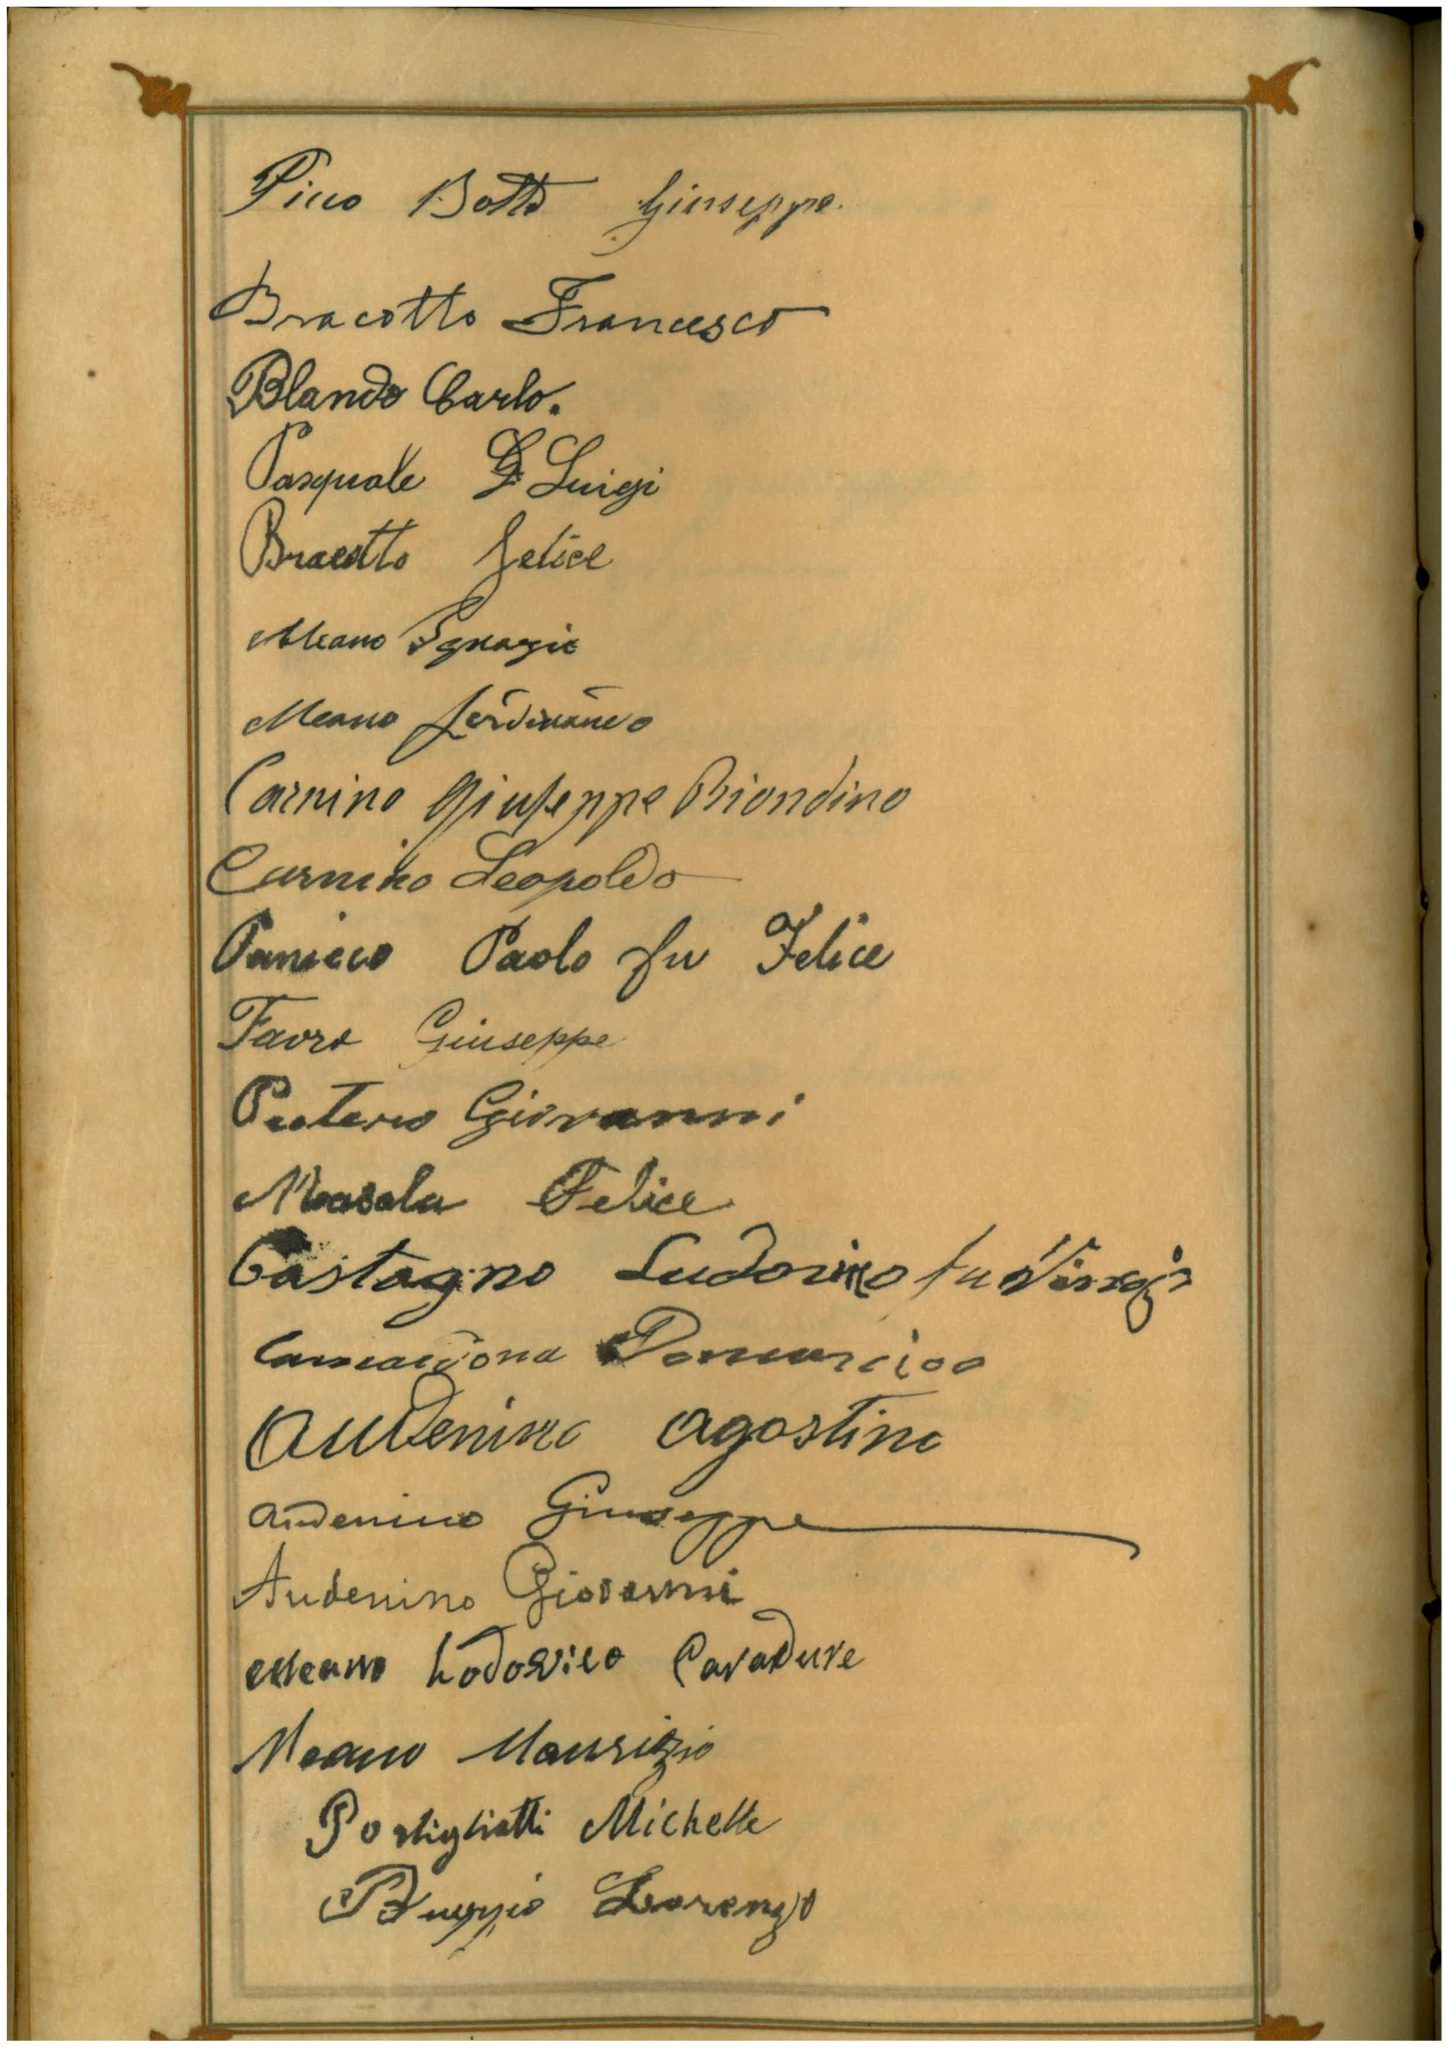 Pico Botto Giuseppe.
Bracotto Francesco
Blando Carlo.
Pasquale G Luigi
Bracotto felice
Meano Ignazio
Meano ferdinando
Carnino Giuseppe Biondino
Carnino Leopoldo
Panicco Paolo fu Felice
Favro Giuseppe
Giovanni
Felice
Castagno Ludovico fu
Audenino Agostino
Audenino Giuseppe
Audenino Giovanni
Meano Lodovico
Meano Maurizio
Portigliatti Michelle
Lorenzo